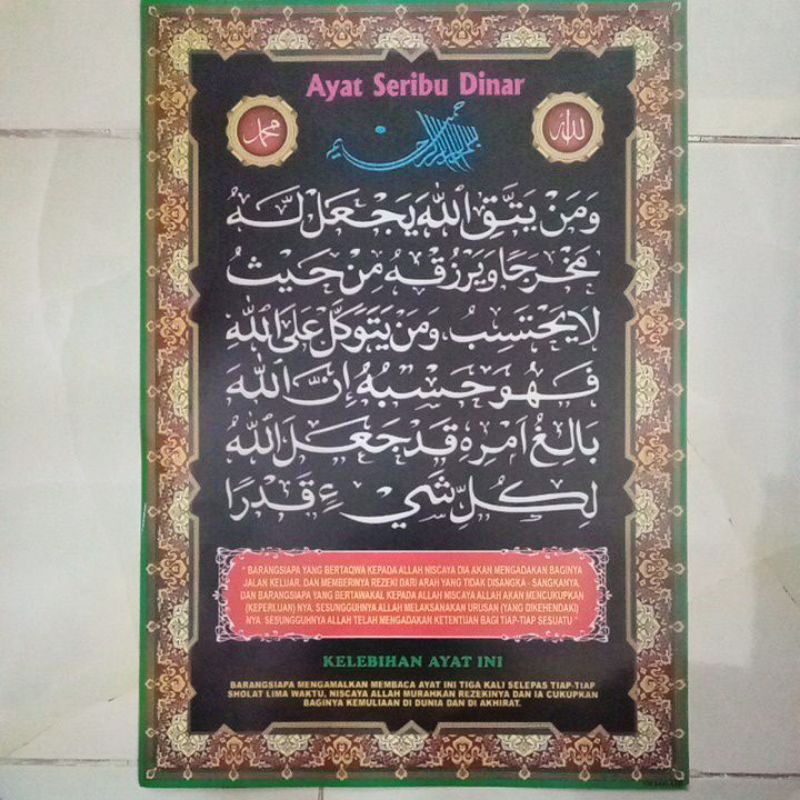 Ayat Seribu Dinar
محمد
الله
بسم الله الرحمن الرحيم
وَمَنْ يَتَّقِ اللّٰهَ يَجْعَلْ لَّهُ
مَخْرَجًا وَيَرْزُقْهُ مِنْ حَيْثُ
لَا يَحْتَسِبُ، وَمَنْ يَتَوَكَّلْ عَلَى اللّٰهِ
فَهُوَ حَسْبُهُ إِنَّ اللّٰهَ
بَالِغُ اَمْرِهِ قَدْ جَعَلَ اللّٰهُ
لِكُلِّ شَيْءٍ قَدْرًا
" BARANGSIAPA YANG BERTAQWA KEPADA ALLAH NISCAYA DIA AKAN MENGADAKAN BAGINYA
JALAN KELUAR, DAN MEMBERINYA REZEKI DARI ARAH YANG TIDAK DISANGKA - SANGKANYA,
DAN BARANGSIAPA YANG BERTAWAKAL KEPADA ALLAH NISCAYA ALLAH AKAN MENCUKUPKAN
(KEPERLUAN) NYA. SESUNGGUHNYA ALLAH MELAKSANAKAN URUSAN (YANG DIKEHENDAKI)
NYA. SESUNGGUHNYA ALLAH TELAH MENGADAKAN KETENTUAN BAGI TIAP-TIAP SESUATU "
KELEBIHAN AYAT INI
BARANGSIAPA MENGAMALKAN MEMBACA AYAT INI TIGA KALI SELEPAS TIAP-TIAP
SHOLAT LIMA WAKTU, NISCAYA ALLAH MURAHKAN REZEKINYA DAN IA CUKUPKAN
BAGINYA KEMULIAAN DI DUNIA DAN DI AKHIRAT.